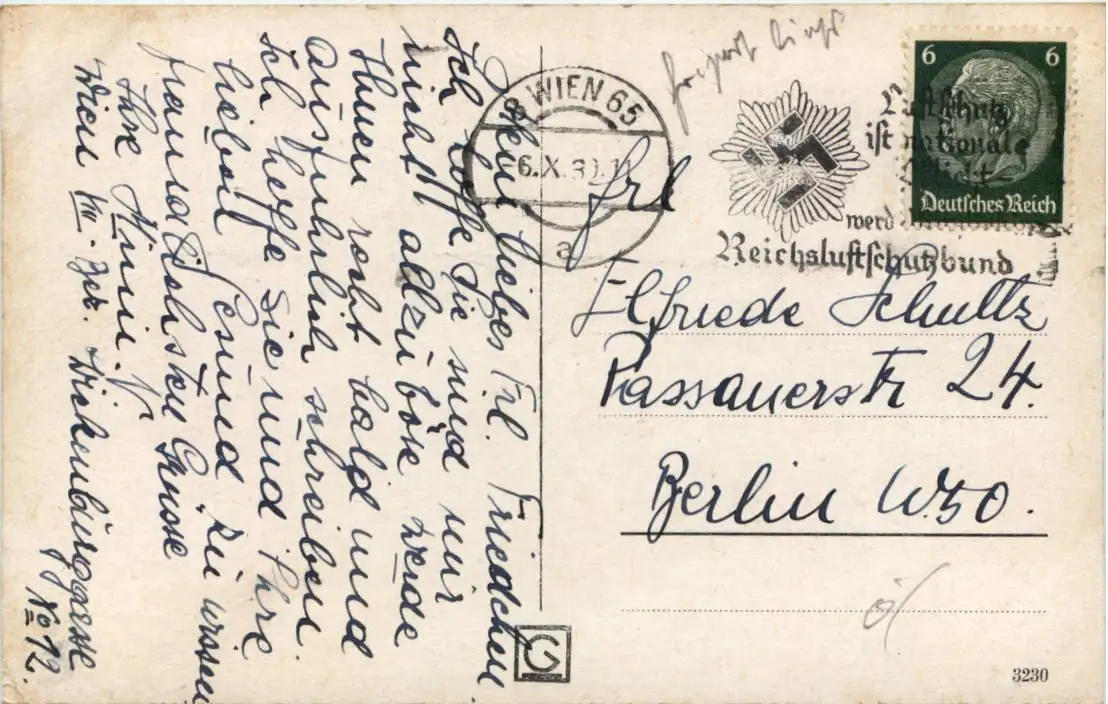 Mein liebes Frl. Friedchen
Ich hoffe Sie sind mir
nicht allzu böse werde
Ihnen recht bald und
ausführlich schreiben.
Ich hoffe Sie und Ihre
lieben gesund zu wissen
herzlichsten Grüsse
Ihre
Wien VIII. Bez. Wickenburggasse
No 12.
8 WIEN 65
6.X.39.11
a
Luftschutz
ist nationale
Pflicht
werd
Reichsluftschutzbund
6 6
Deutsches Reich
Frl
Elfriede Schultz
Passauerstr 24.
Berlin W50.
G
3230